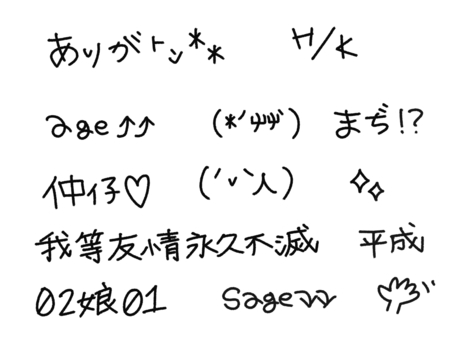 ありがㅏぃ** H/K
age↑↑ (*´艸`) まぢ!?
仲仔♡ (´v`人)
我等友情永久不滅 平成
02娘01 sage↷↷